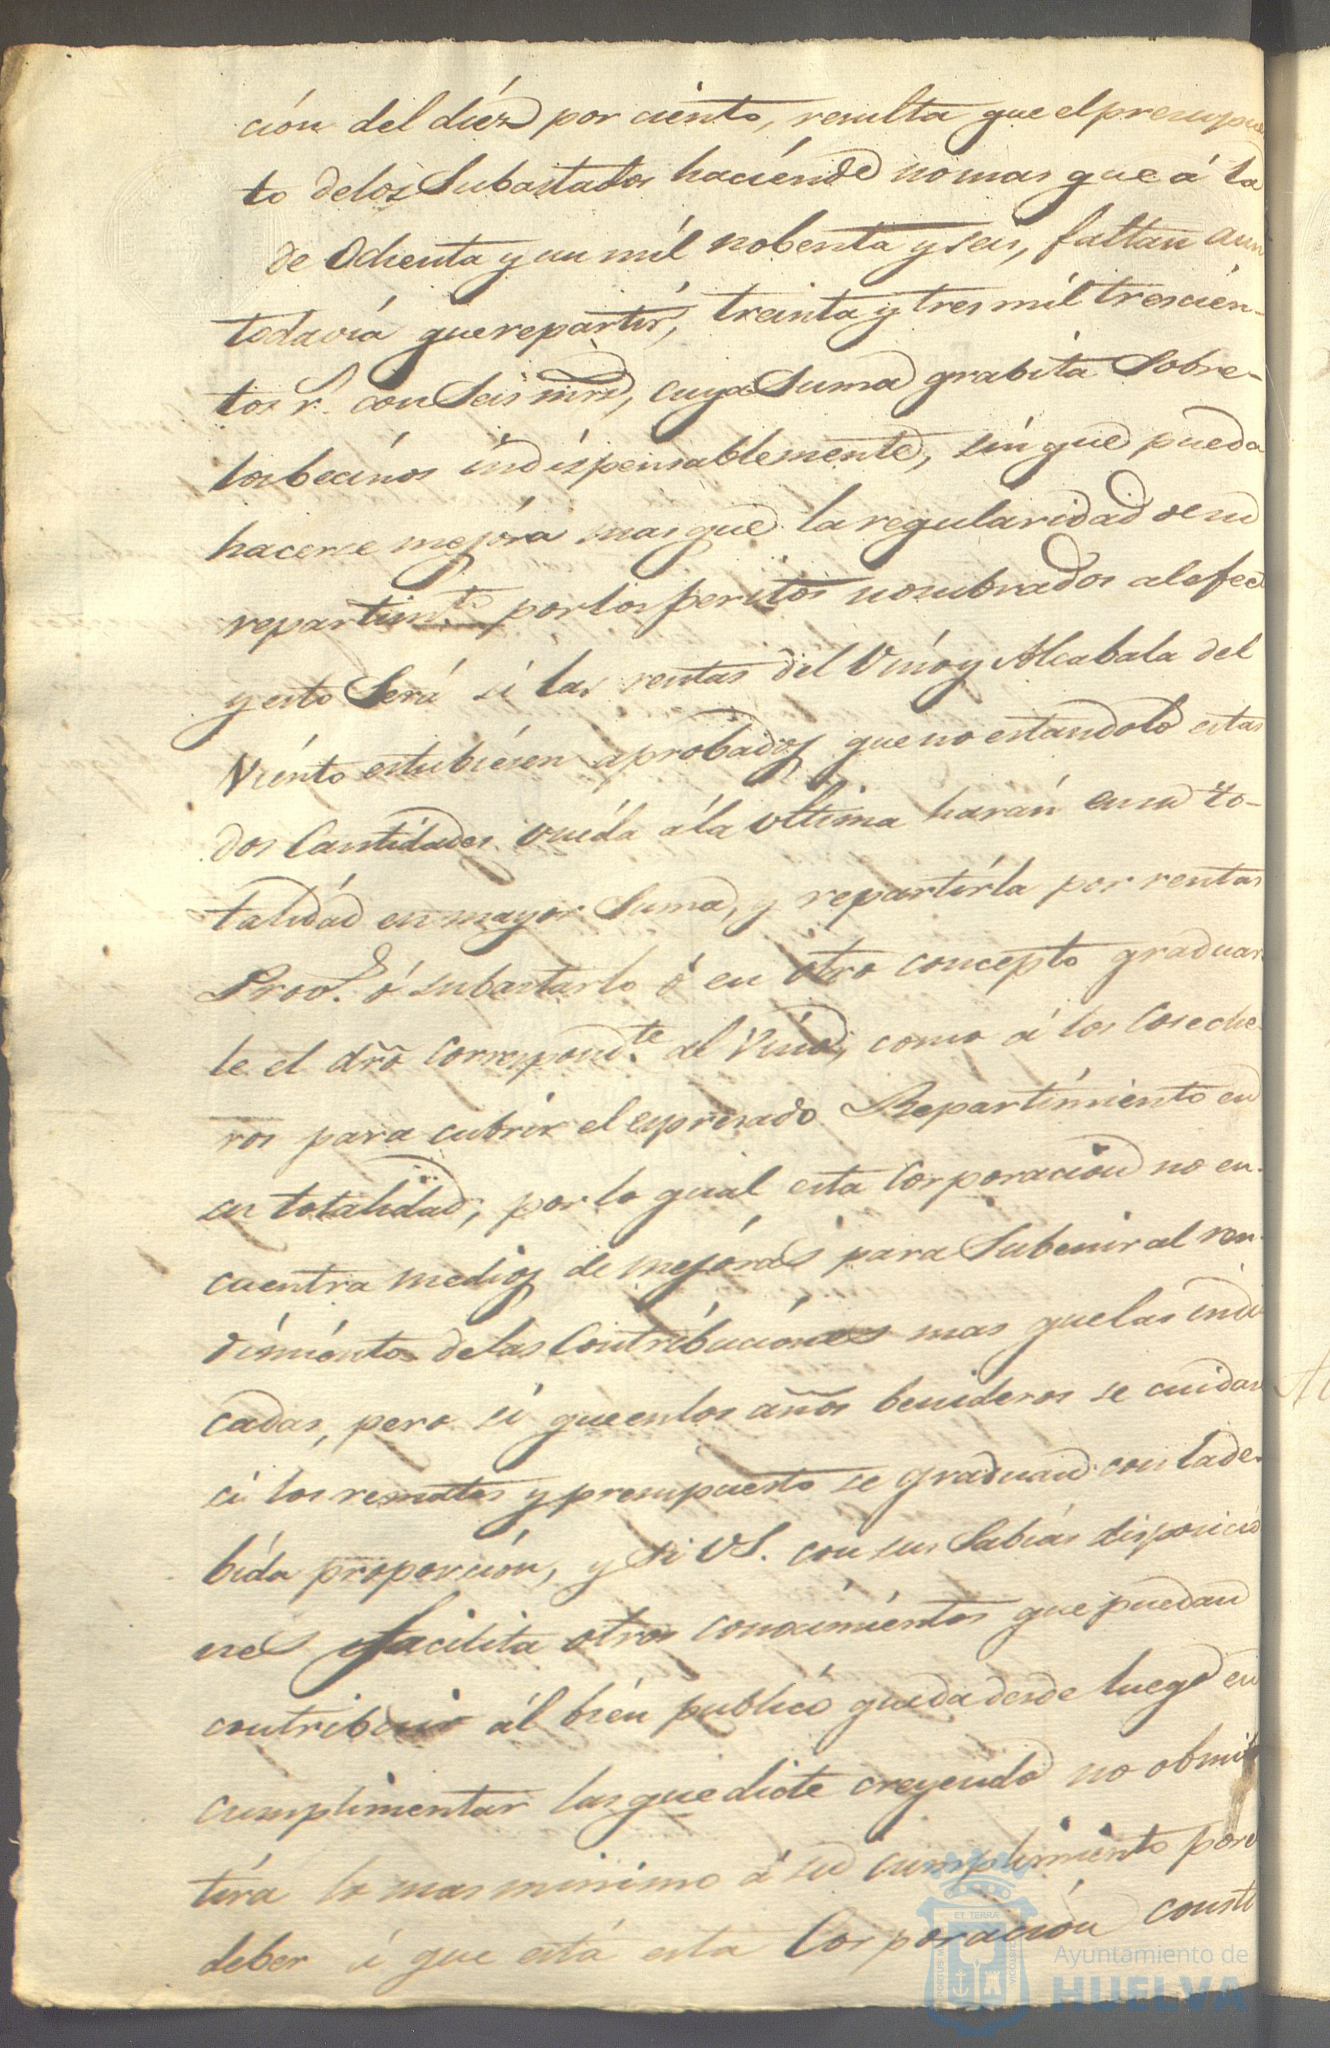 ción del diéz por ciento, resulta que el presupues
to delos Subastados haciénde no mas que á la
de Ochenta y un mil nobenta y seis, faltan aun
todavía que repartir, treinta y tres mil trescién-
tos r.^s con Seis mrs, cuya Suma grabita Sobre-
los becinos indispensablemente, sin que pueda
hacerse mejóra mas que la regularidad de su
repartim.^to por los peritos nombrados al efecto
y esto Será si las rentas del Vino y Alcabala del
Viénto estubiésen aprobadas, que no estandolo estas
dos Cantidades unida á la ultima harán en su to-
talidad en mayor Suma, y repartirla por rentas
Prov.^s ó subastarlo ó en otro concepto graduar
le el dro correspond.^te al Vino, como á los Coseche-
ros para cubrir el espresado Repartimiento en
su totalidad, por lo qual esta Corporación no en-
cuentra medios de mejoras para Subenir al ren-
dimiénto delas Contribuciónes mas que las indi
cadas, pero si que en los años benideros se cuidará
si los remates y presupuesto se graduan con la de-
bida proporción, y Si VS. con sus Sabias disposicio
nes facilita otros conocimiéntos que puedan
contribuir ál bién publicó queda desde luego en
cumplimentar las que dicte creyendo no obmi
tira lo mas minimo á su cumplimiento por el
deber á que está esta Corporación consti
Ayuntamiento de
HUELVA